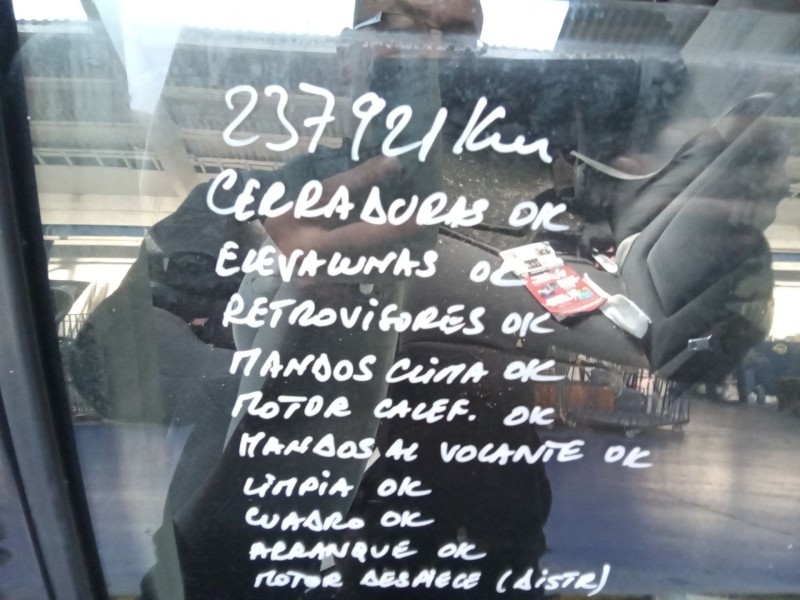 237921 Km
CERRADURAS OK
ELEVALUNAS OK
RETROVISORES OK
MANDOS CLIMA OK
MOTOR CALEF. OK
MANDOS AL VOLANTE OK
LIMPIA OK
CUADRO OK
ARRANQUE OK
MOTOR DESPIECE (DISTR)